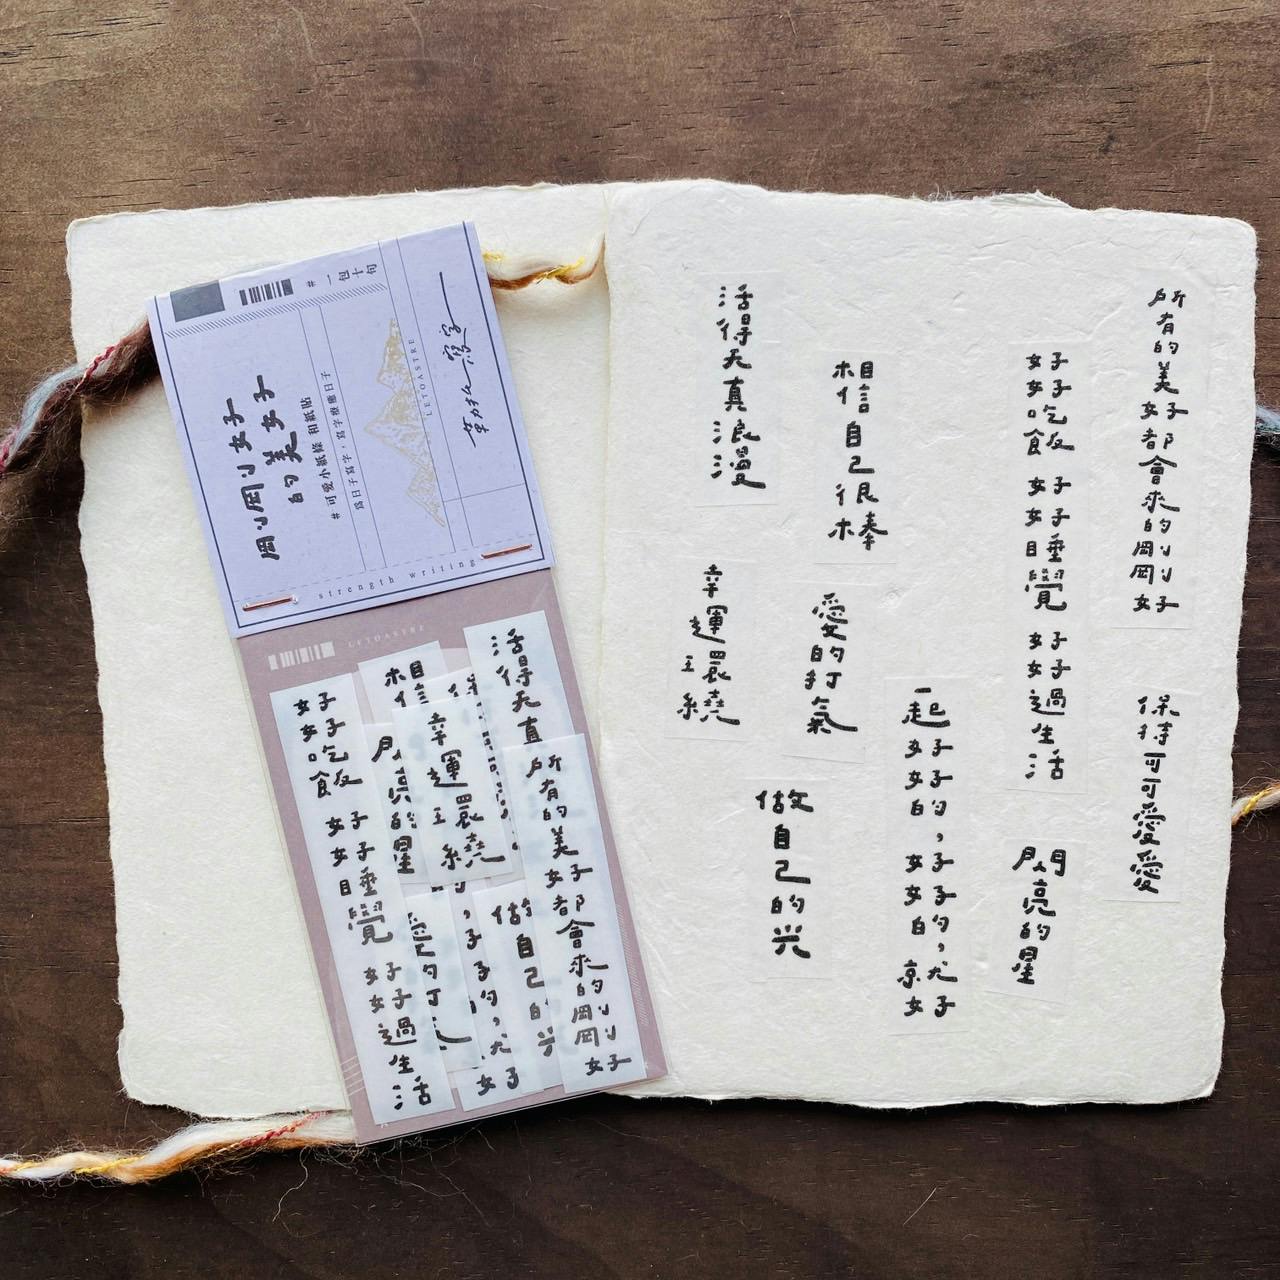 剛剛好
的美好
# 可愛小紙條 和紙貼
為日子寫字，寫字療癒日子
LETOASTRE
# 一包十句
strength writing
LETOASTRE
好好吃飯 好好睡覺 好好過生活
相信
閃亮的星
幸運環繞
活得天真
所有的美好都會來的剛剛好
愛的打氣
做自己的光
所有的美好都會來的剛剛好
保持可可愛愛
好好吃飯 好好睡覺 好好過生活
閃亮的星
一起好好的，好好的，就好
相信自己很棒
愛的打氣
做自己的光
活得天真浪漫
幸運環繞